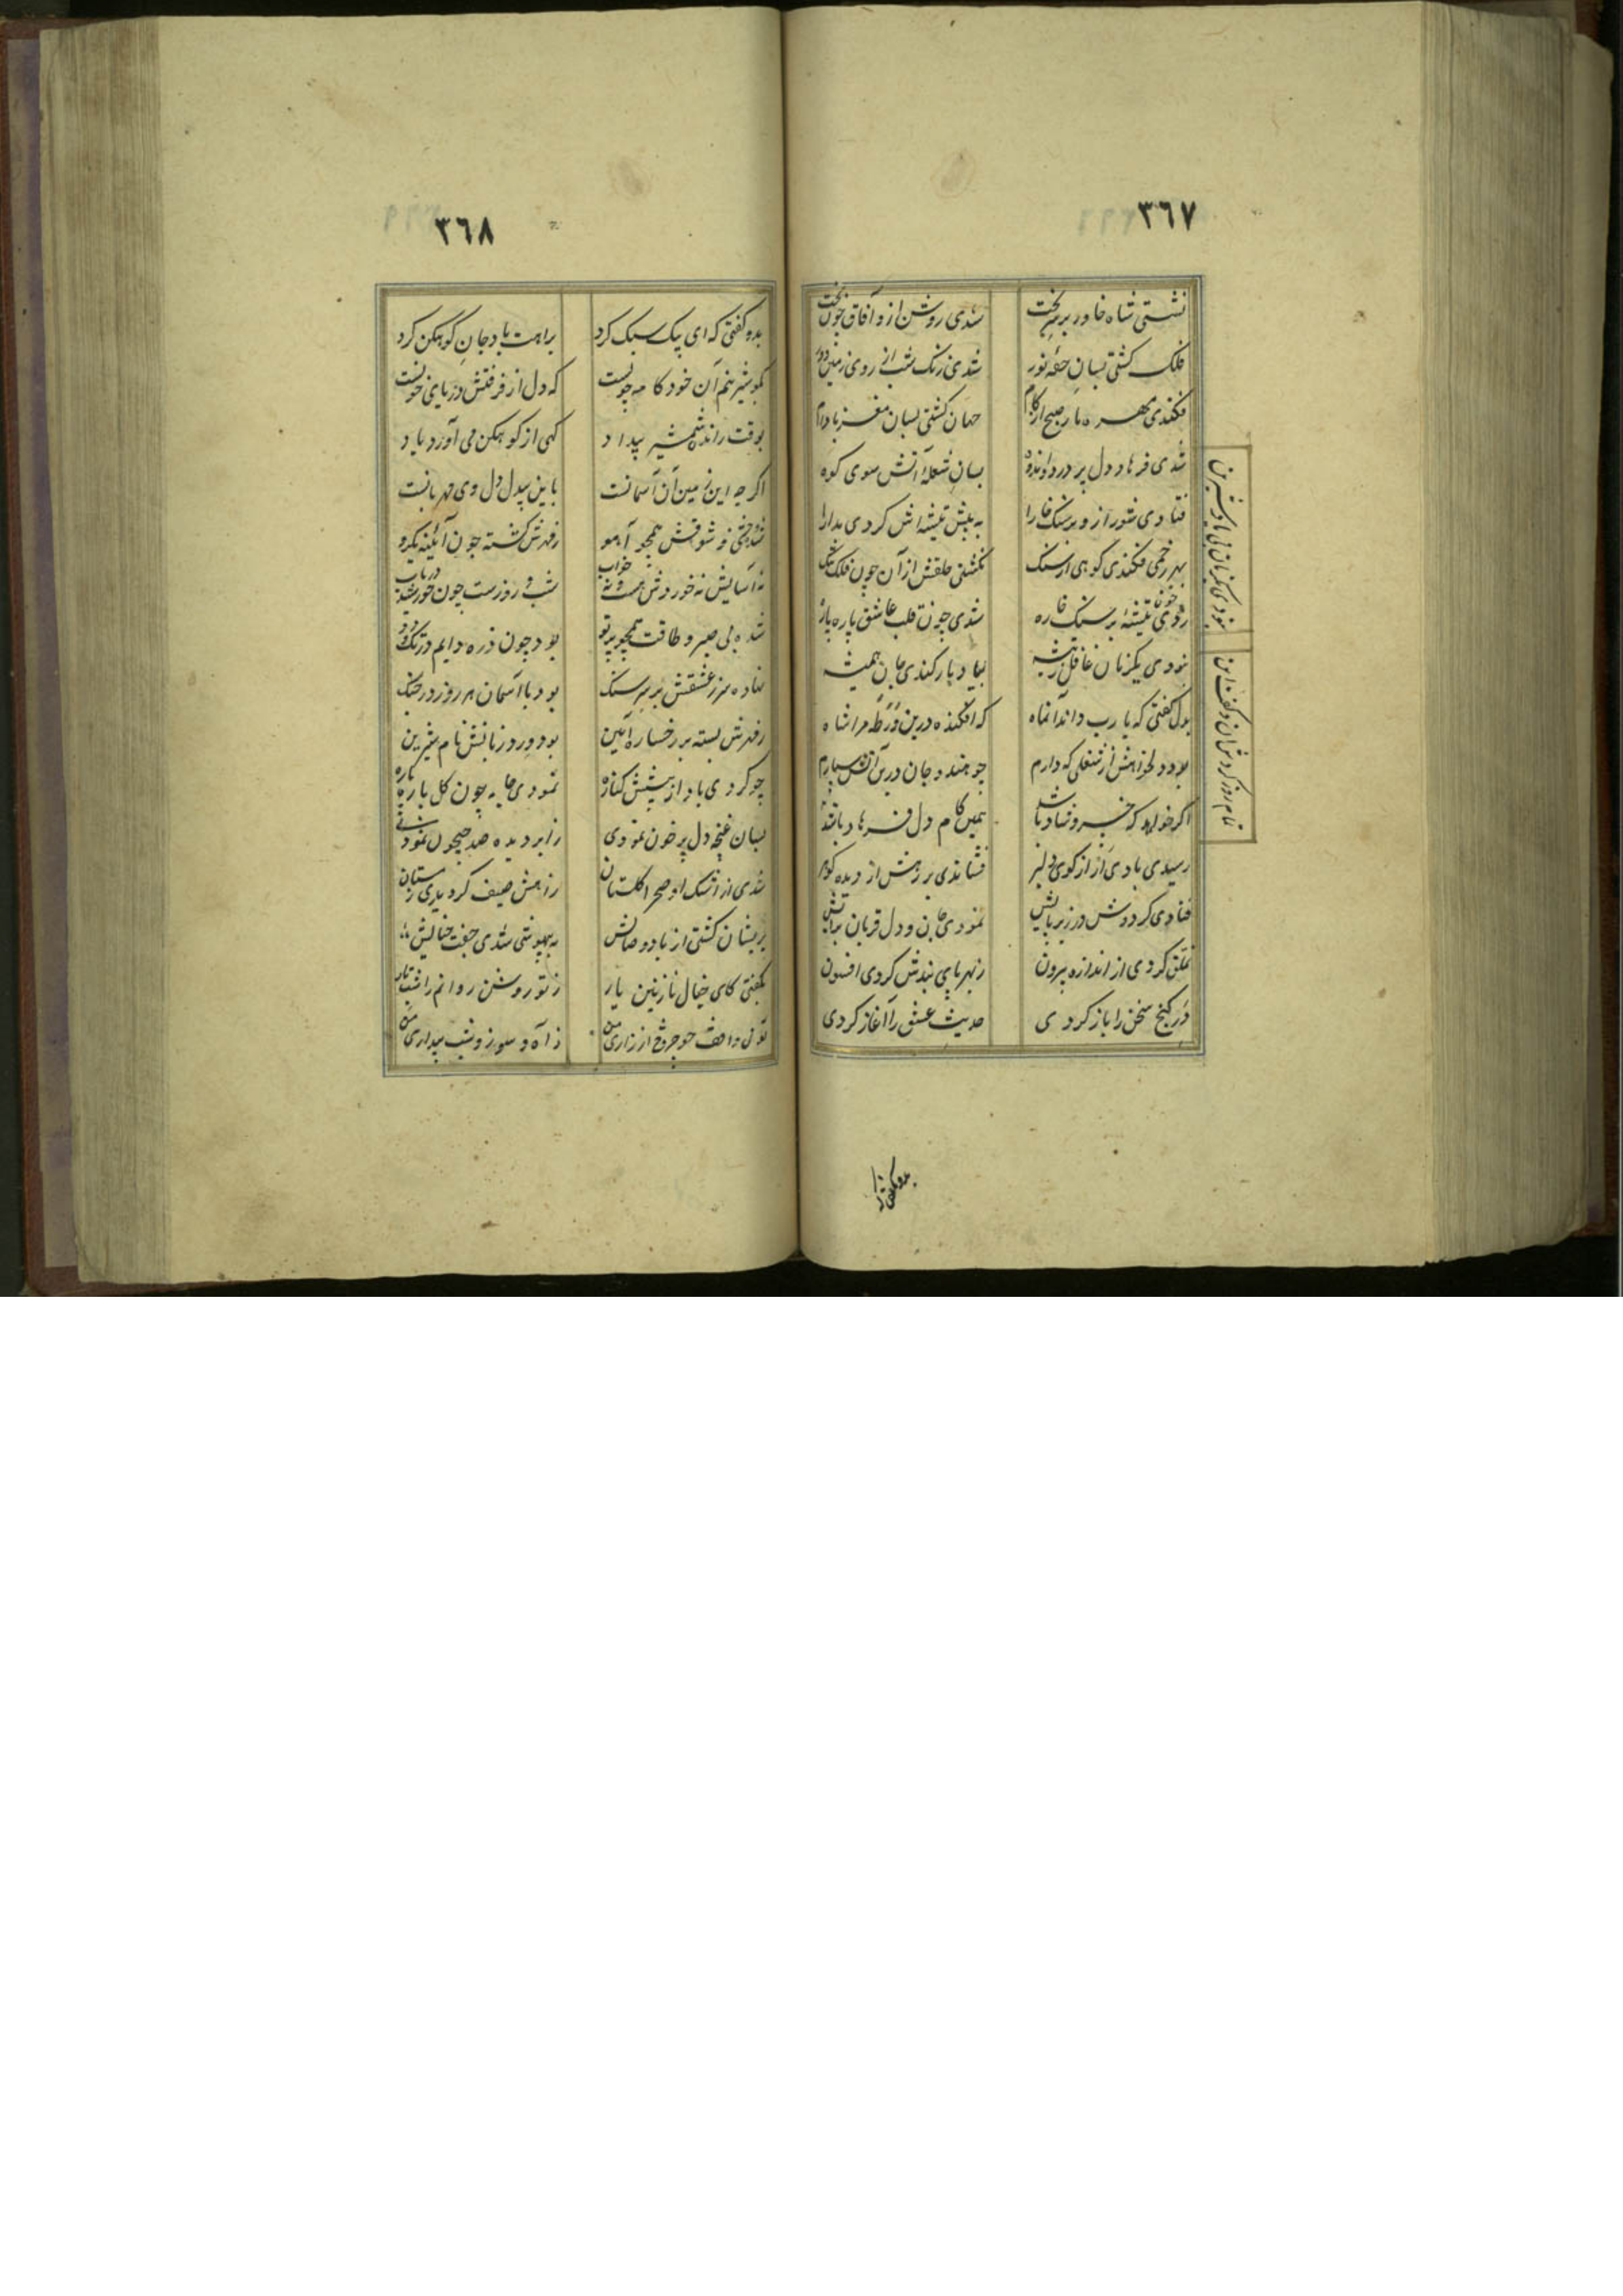 ٣٦٧
نشستی شاه خاور بر سر تخت
شدی روشن ازو آفاق چون بخت
فلک کشتی بسان حقهٔ نور
شدی زنک شب از روی زمین دور
فکندی مهره مار صبح از کام
جهان کشتی بسان مغز بادام
شدی فرهاد دل پر درد و اندوه
بسان شعلهٔ آتش سوی کوه
فتادی شور ازو در سنک خارا
به پیش تیشه اش کردی مدارا
بهر زخمی فکندی کوهی از سنک
نکشتی خلقش از آن چون فلک تنک
زدی چون تیشه بر سنک خاره
شدی چون قلب عاشق پاره پاره
نبودی یکزمان غافل ز تیشه
بیاد یار کندی جان همیشه
بدل کفتی که یا رب داند آنماه
که افکنده درین ورطه مرا شاه
بود دلخواهش از شغلی که دارم
چو هندو جان درین آتش سپارم
اکر خواهد که خسرو شاد باشد
همین کام دل فرهاد باشد
رسیدی بادی ار از کوی دلبر
فشاندی بر رهش از دیده کوهر
فتادی کردوش در زیر پایش
نمودی جان و دل قربان برایش
تملق کردی از اندازه بیرون
ز بهر پای بندش کردی افسون
در کنج سخن را باز کردی
حدیث عشق را آغاز کردی
نبودی یکزمان بی یاد شیرین
تمام روز کردش آن و کفت این
بدو کفتی که
٣٦٨
بدو کفتی که ای پیک سبک کرد
براهت باد جان کوهکن کرد
بکو شیرینم آن خودکامه چونست
که دل از فرقتش دریای خونست
بوقت راندن شمشیر بیداد
کهی از کوهکن می آورد یاد
اکرچه این زمین آن آسمانست
باین بیدل دل وی مهربانست
شد وحشی ز شوقش همچو آهو
ز مهرش کشته چون آئینه یکرو
نه آسایش نه خوردش هست و نه خواب
شب و روزست چون خورشید در تاب
شده بی صبر و طاقت همچو پرتو
بود چون ذره دایم در تک و دو
نهاده سر ز عشقش بر سر سنک
بود با آسمان هر روز در جنک
ز مهرش بسته بر رخساره آئین
بود ورد زبانش نام شیرین
چو کردی باد از پیشش کناره
نمودی جامه چون کل پاره پاره
بسان غنچه دل پر خون نمودی
ز ابر دیده صد جیحون نمودی
شدی از اشک او صحرا کلستان
ز آهش صیف کردیدی زمستان
پریشان کشتی از باد وصالش
به بیهوشی شدی جفت خیالش
بکفتی کای خیال نازنین یار
ز تو روشن روانم را شب تار
توئی واقف چو چرخ از زاری من
ز آه و سوز و شب بیداری من